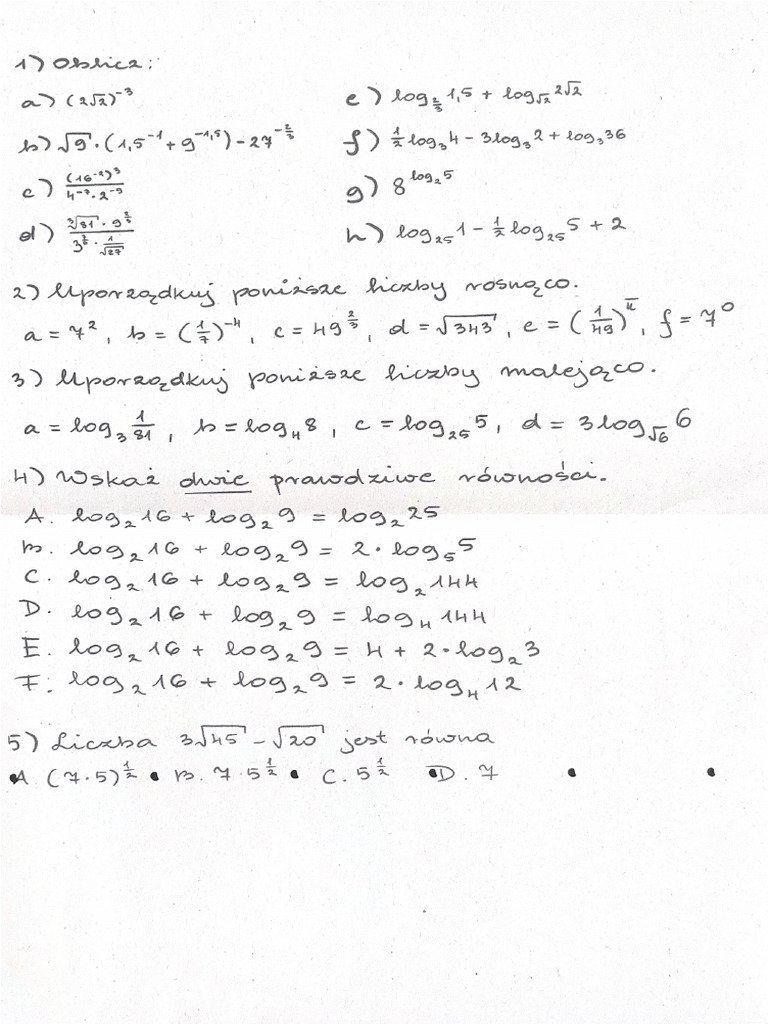 1) Oblicz:
a) (2√2)⁻³
b) √9 · (1,5⁻¹ + 9^(-1,5)) - 27^(-2/3)
c) (16⁻²)³ / (4⁻⁷ · 2⁻⁹)
d)
e) log_(2/3) 1,5 + log_√2 2√2
f) ½ log₃ 4 - 3 log₃ 2 + log₃ 36
g) 8^(log₂ 5)
h) log₂₅ 1 - ½ log₂₅ 5 + 2
2) Uporządkuj poniższe liczby rosnąco.
a = 7², b = (1/7)⁻⁴, c = 49^(2/3), d = √343, e = (1/49)^, f = 7⁰
3) Uporządkuj poniższe liczby malejąco.
a = log₃ 1/81, b = log₄ 8, c = log₂₅ 5, d = 3 log_√6 6
4) Wskaż dwie prawdziwe równości.
A. log₂ 16 + log₂ 9 = log₂ 25
B. log₂ 16 + log₂ 9 = 2 · log₅ 5
C. log₂ 16 + log₂ 9 = log₂ 144
D. log₂ 16 + log₂ 9 = log₄ 144
E. log₂ 16 + log₂ 9 = 4 + 2 · log₂ 3
F. log₂ 16 + log₂ 9 = 2 · log₄ 12
5) Liczba 3√45 - √20 jest równa
A (7·5)^(1/2) B. 7·5^(1/2) C. 5^(1/2) D. 7